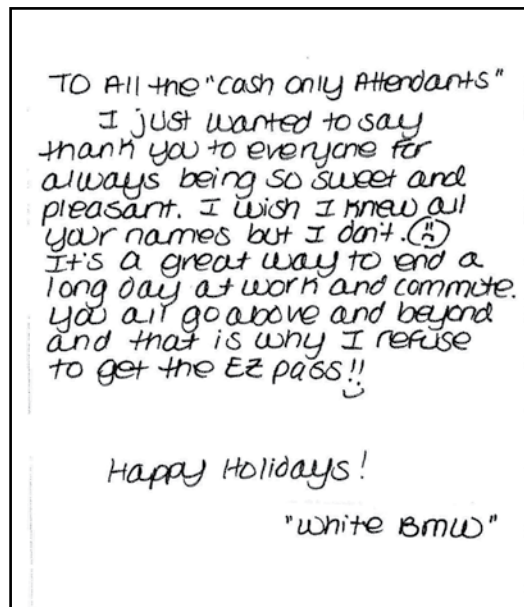 TO All the "Cash Only Attendants"
I just wanted to say
thank you to everyone for
always being so sweet and
pleasant. I wish I knew all
your names but I don't. ☹
It's a great way to end a
long day at work and commute.
you all go above and beyond
and that is why I refuse
to get the EZ pass!!
Happy Holidays!
"White BMW"